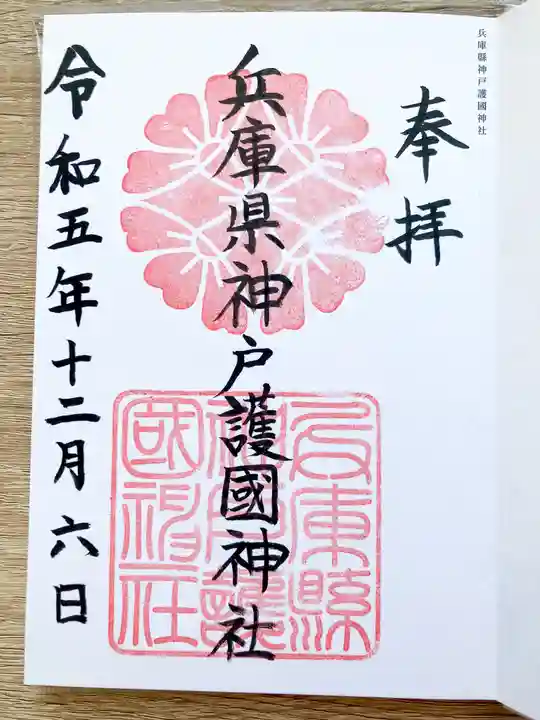 兵庫縣神戸護國神社
奉拝
兵庫県神戸護國神社
兵庫縣神戸護國神社
令和五年十二月六日